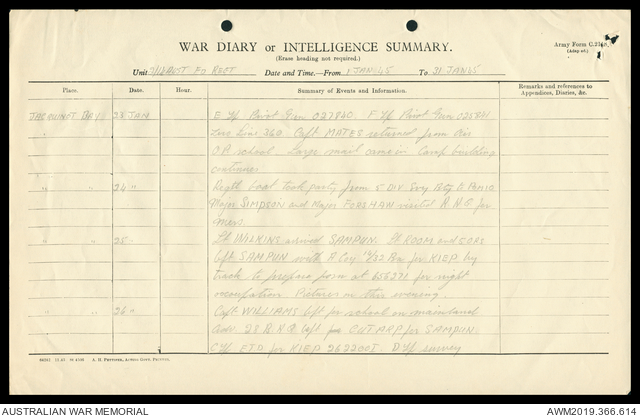 WAR DIARY or INTELLIGENCE SUMMARY.
Army Form C.2118.
(Erase heading not required.)
Unit AUST FD REGT Date and Time.—From 1 JAN 45 To 31 JAN 45
Place. Date. Hour. Summary of Events and Information. Remarks and references to Appendices, Diaries, &c.
JACQUINOT BAY 23 JAN E Tp Pivot Gun 027840. F Tp Pivot Gun
Zero line 360 Capt MATES returned from Air
O.P. school. Large mail came in Camp building
continues
" " 24 " Regtl boat took party from 5 DIV Svy Bty to
Major SIMPSON and Major FOREMAN visited R.N.S for
" " 25 - Lt WILKINS arrived SAMPUN. Lt ROOM and 5 ORS
left SAMPUN with A Coy Bn for KIEP by
track to prepare posn at 656271 for night
occupation Pictures in this evening.
" " 26 " Capt WILLIAMS left for school on mainland
Adv. R.H.Q left for CUTARP for SAMPUN.
C Tp ETD for KIEP 262200I. D Tp survey
A. H. PETTIFER, ACTING GOVT. PRINTER.
AUSTRALIAN WAR MEMORIAL
AWM2019.366.614